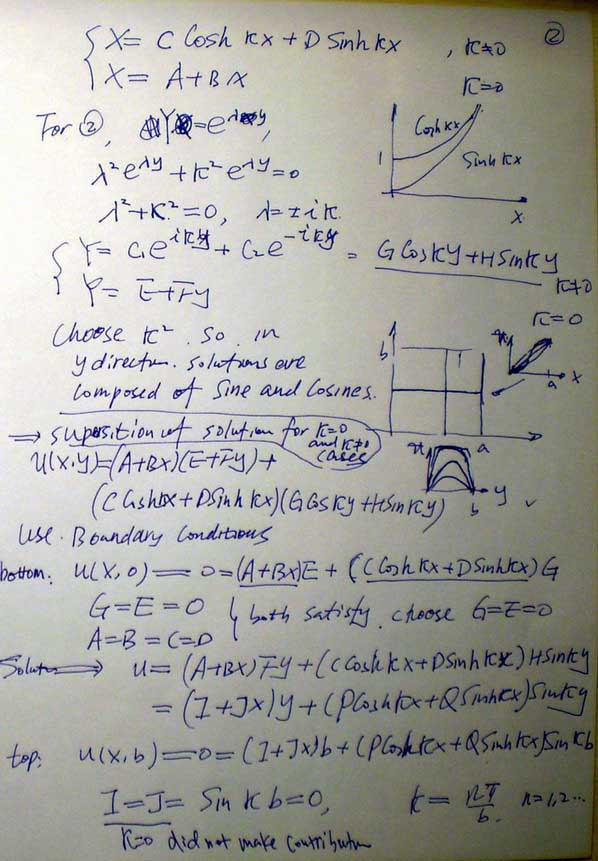 ②
{ X = C Cosh kx + D Sinh kx , k≠0
{ X = A + B x k=0
For ②, Y = e^λy,
λ² e^λy + k² e^λy = 0
λ² + k² = 0, λ = ± i k
{ Y = C₁ e^iky + C₂ e^-iky = G Cos ky + H Sin ky
{ Y = E + Fy k≠0
k=0
1
Cosh kx
Sinh kx
x
Choose k² so in
y direction. solutions are
composed of Sine and Cosines.
b
a
x
a
y
b
⇒ supersition of solution for k=0
and k≠0
cases
U(x,y) = (A+Bx)(E+Fy) +
(C Cosh kx + D Sinh kx)(G Cos ky + H Sin ky)
Use Boundary Conditions
bottom: U(x,0) = 0 = (A+Bx)E + (C Cosh kx + D Sinh kx) G
G = E = 0
A = B = C = D
} both satisfy. choose G=E=0
⇒ U = (A+Bx)Fy + (C Cosh kx + D Sinh kx) H Sin ky
= (I+Jx)y + (P Cosh kx + Q Sinh kx) Sin ky
top: U(x,b) = 0 = (I+Jx)b + (P Cosh kx + Q Sinh kx) Sin kb
I = J = Sin k b = 0, k = nπ/b. n=1,2...
k=0 did not make